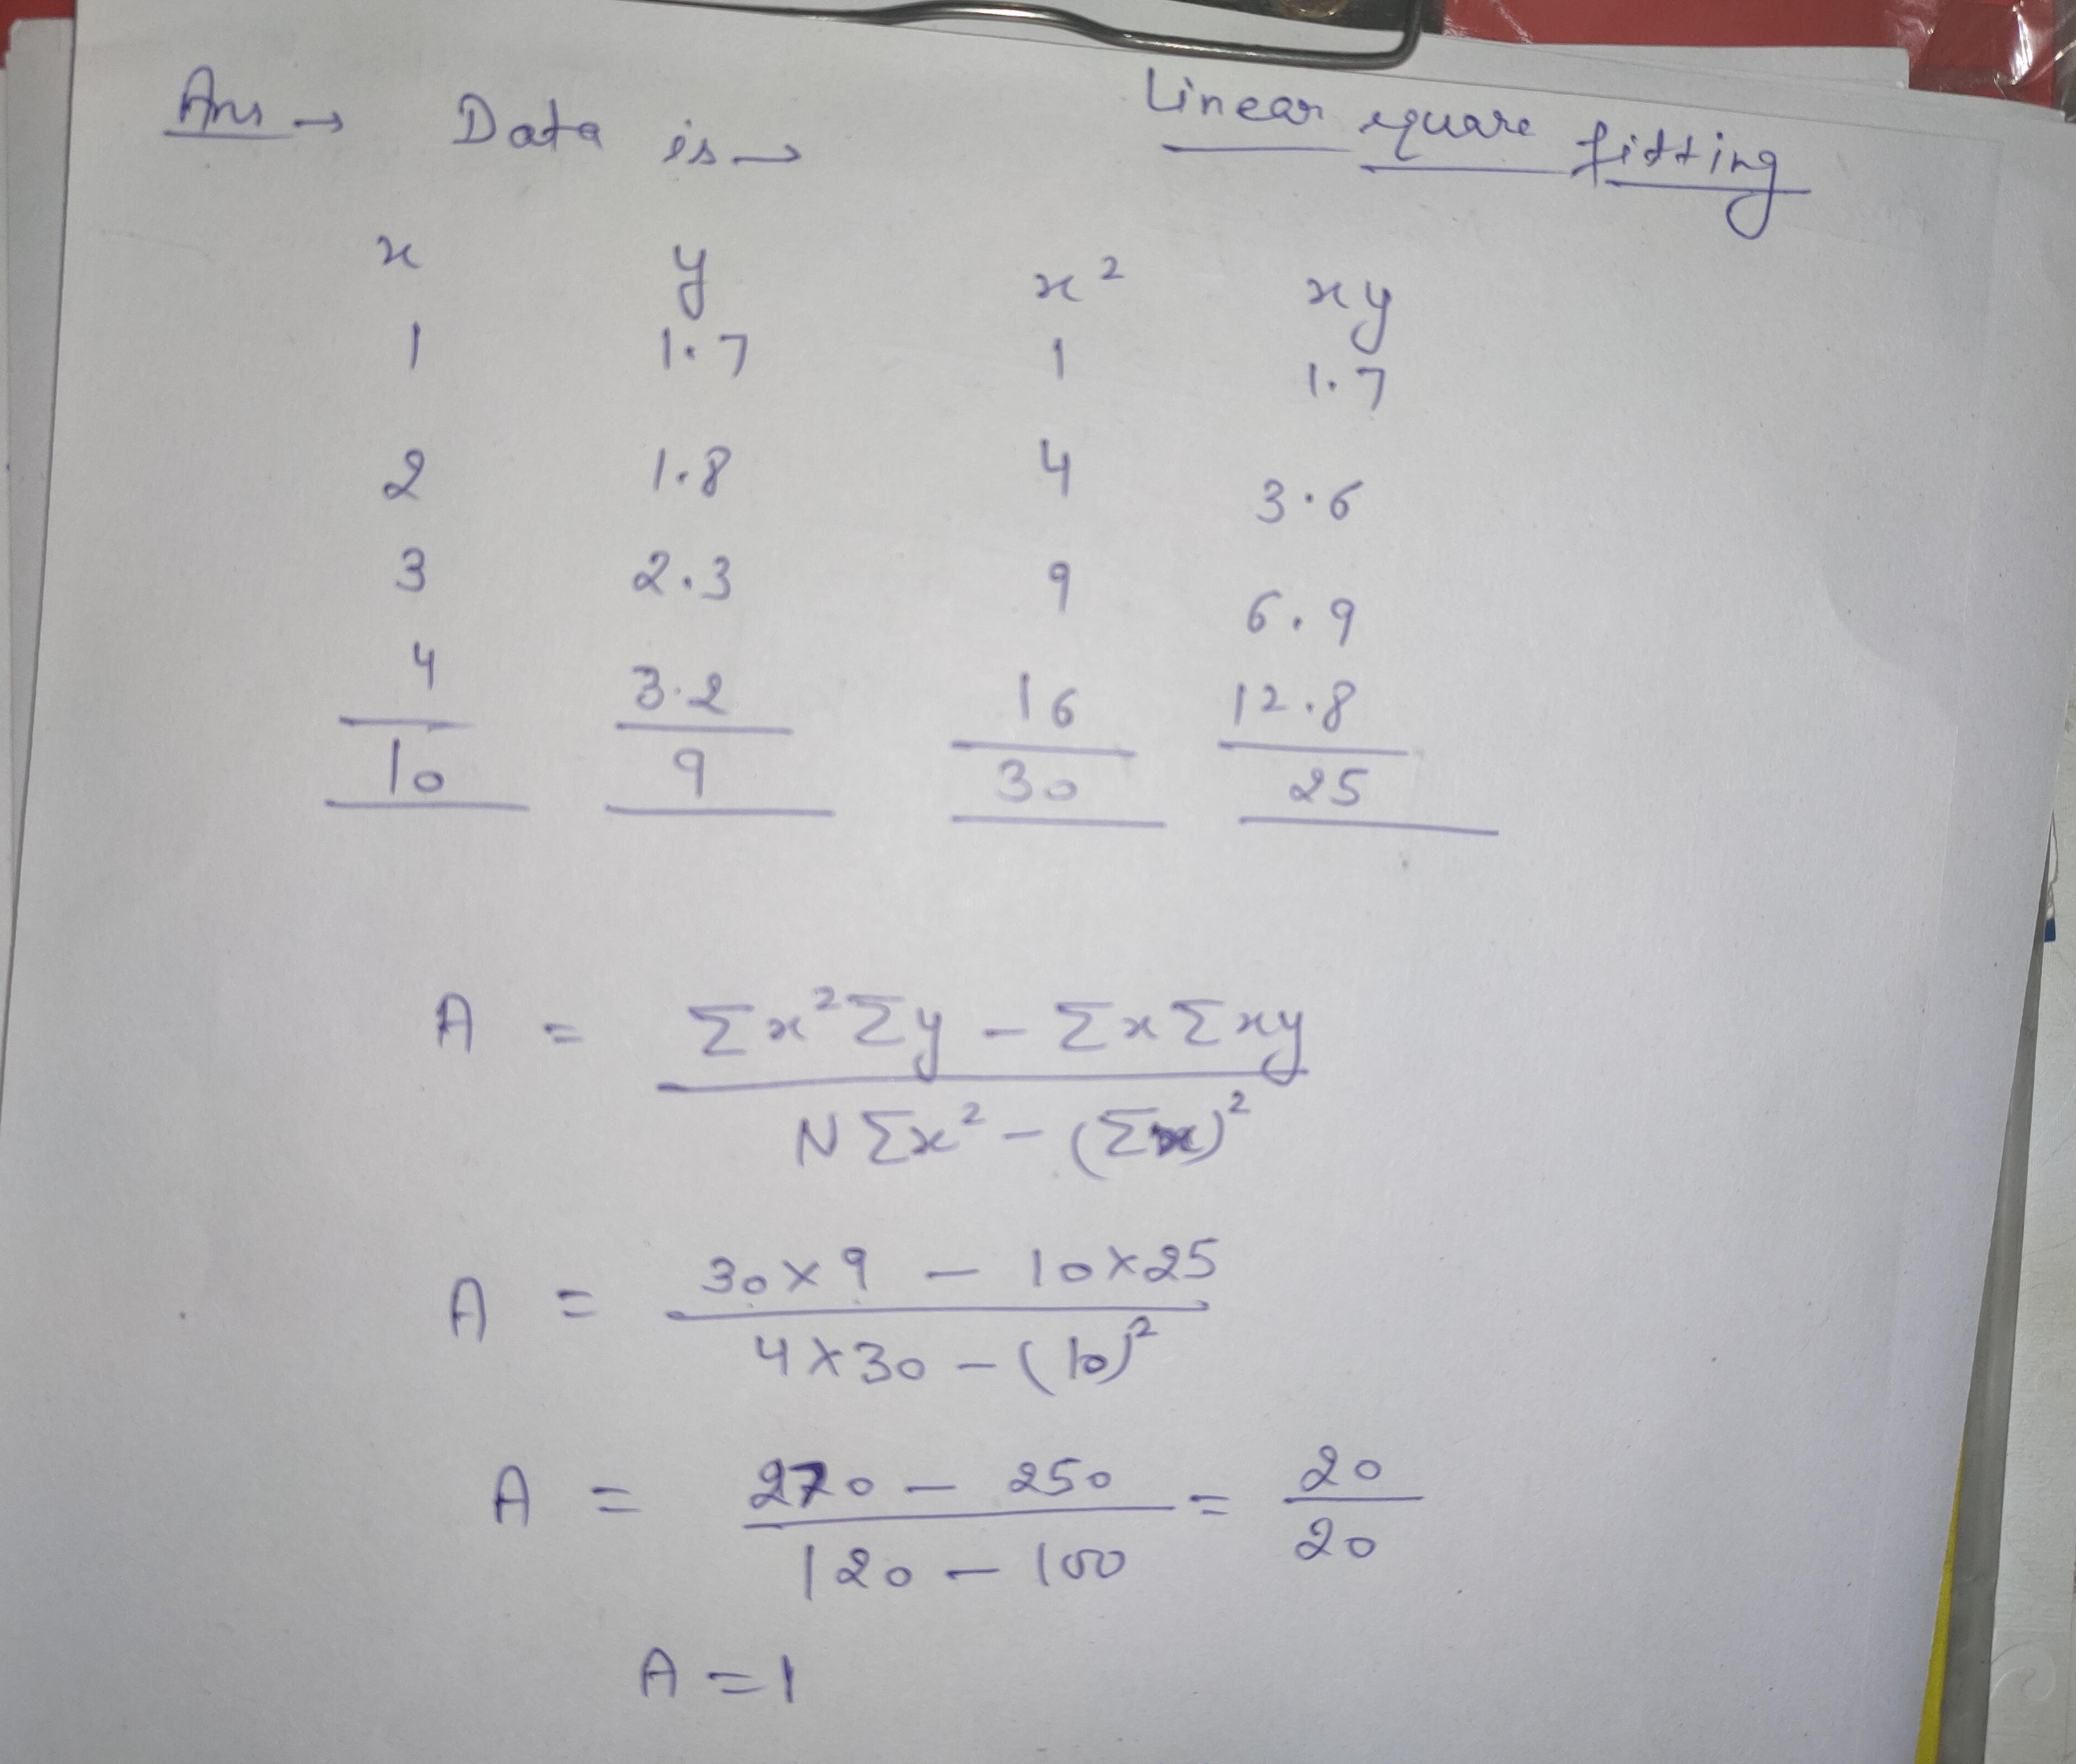 Ans → Data is → Linear square fitting
x y x² xy
1 1.7 1 1.7
2 1.8 4 3.6
3 2.3 9 6.9
4 3.2 16 12.8
10 9 30 25
A = Σx²Σy - ΣxΣxy / NΣx² - (Σx)²
A = 30×9 - 10×25 / 4×30 - (10)²
A = 270 - 250 / 120 - 100 = 20 / 20
A = 1